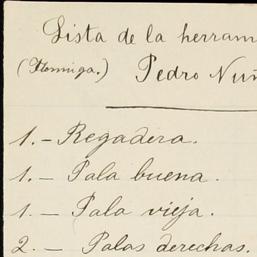 Lista de la herram
(Hormiga.) Pedro Nuñ
1.- Regadera.
1.- Pala buena.
1.- Pala vieja.
2.- Palas derechas.